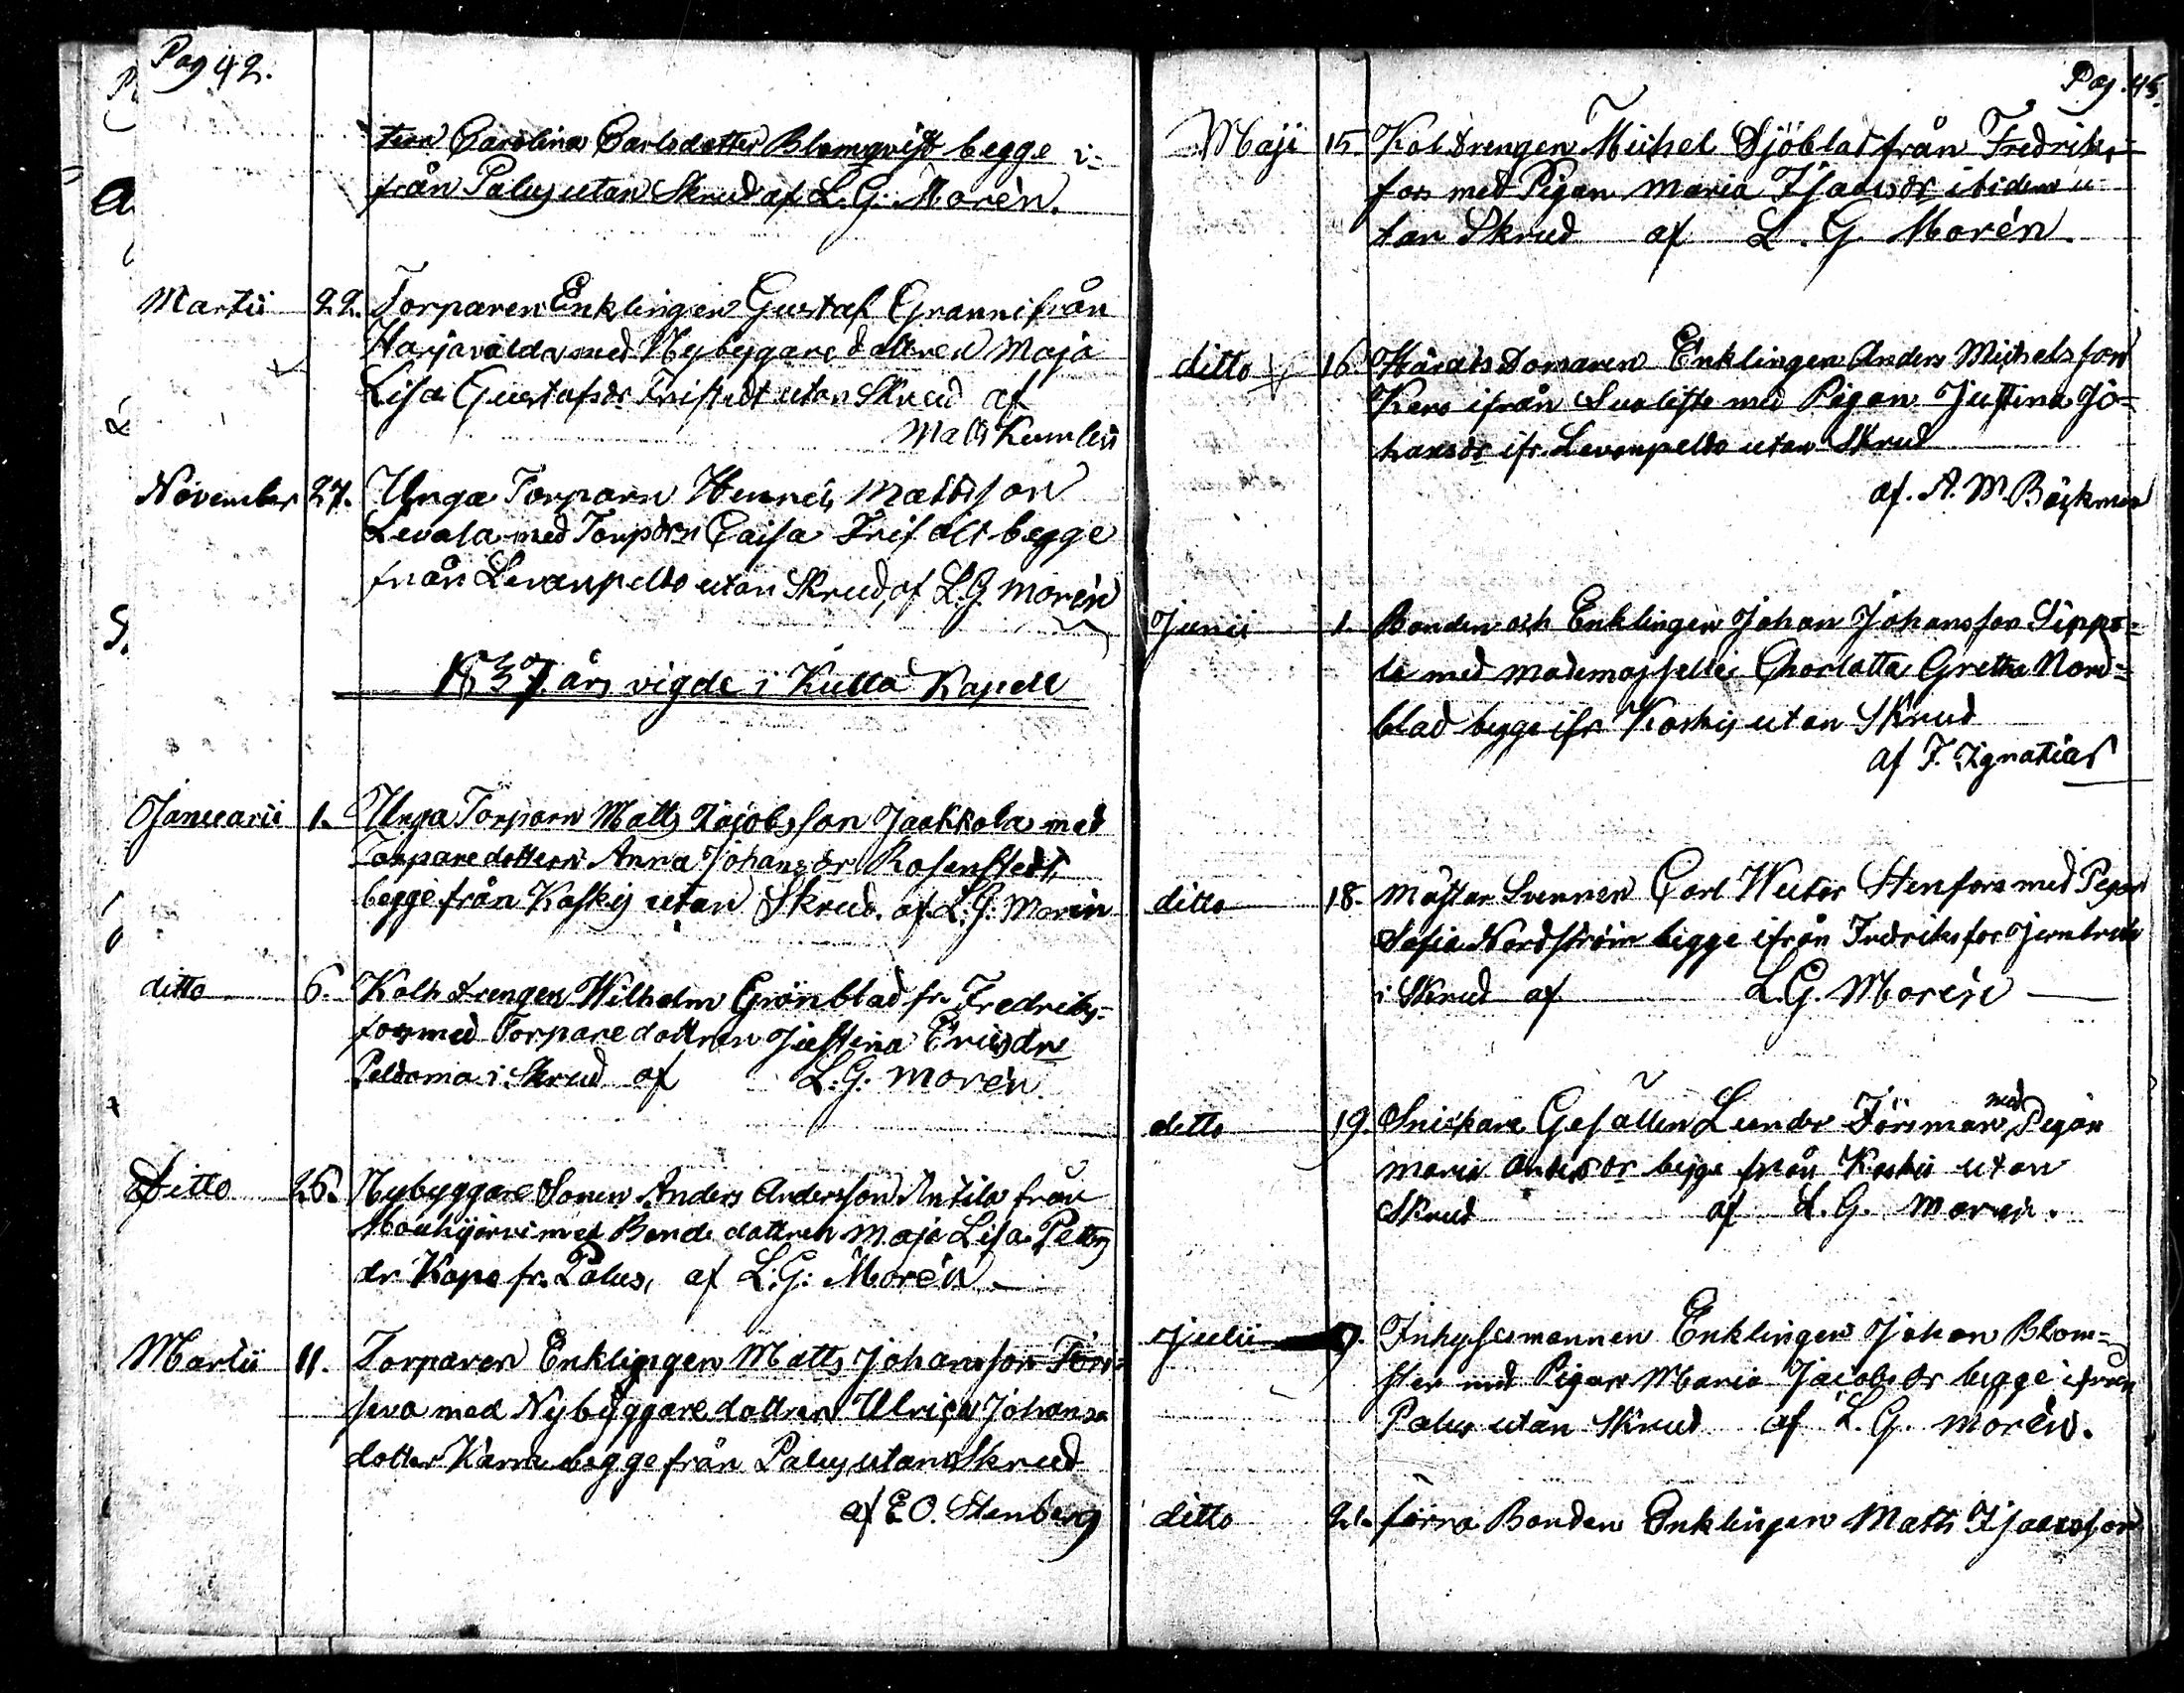 Pag 42.
tren Carolina Carlsdotter Blomqvist begge i-
från Palus utan Skrud af L. G. Morén.
Martii 22. Torparen Enklingen Gustaf Grann ifrån
Harjavalda med Nybygare dottren Maja
Lisa Gustafsdr Fristedt utan Skrud af
Matts Kumlin
November 27. Unga Torparn Henric Mattsson
Levala med Torpdrn Caisa Frisolt begge
från Levanpeldo utan Skrud, af L.G. Morén
1837 års vigde i Kulla Kapell
Januarii 1. Unga Torparn Matts Jacobsson Jaakkola med
Torparedottern Anna Johansdr Rosenstedt,
begge från Kaskij utan Skrud. af L:G: Morén
ditto 6. Kolh drengen Wilhelm Grönblad fr. Fredriks-
fors med Torparedottren Justina Ericsdr
Peldoma i Skrud af L:G: Morén.
Ditto 26. Nybyggare Sonen Anders Andersson Antila från
Mouhijärvi med Bonde dottren Maja Lisa Petters
dr Kapo fr. Palus, af L:G: Morén
Martii 11. Torparen Enklingen Matts Johansson Torri-
seva med Nybyggare dottren Ulrica Johans
dotter Karra begge från Palus utan Skrud
af E O. Stenberg
Pag. 43.
Maji 15. Kol drengen Michel Sjöblad från Fredriks-
fors med Pigan Maria Isacsdr ibidem u-
tan Skrud af L. G. Morén.
ditto 16. Härads Domaren Enklingen Anders Michelsson
Kero ifrån Suoliste med Pigan Justina Jo-
hansdr ifr. Levanpeldo utan Skrud
af. A. M. Bäckman
Junii 1. Bonden och Enklingen Johan Johansson Sippo-
la med Mademoiselle Charlotta Gretha Nord-
blad begge ifr. Koskij utan Skrud
af F. Ignatius
ditto 18. Mästar Svennen Carl Victor Stenfors med Pigan
Sofia Nordström begge ifrån Fredriksfors Jernbruk
i Skrud af L.G. Morén
ditto 19. Snickare Gesällen Leander Törnman med Pigan
Maria Andersdr begge från Koskii utan
Skrud af L. G. Morén.
Julii 9. Inhysesmannen Enklingen Johan Blom-
ster med Pigan Maria Jacobsdr begge ifrån
Palus utan Skrud af L. G. Morén.
ditto 21. förra Bonden Enklingen Matts Isacsson